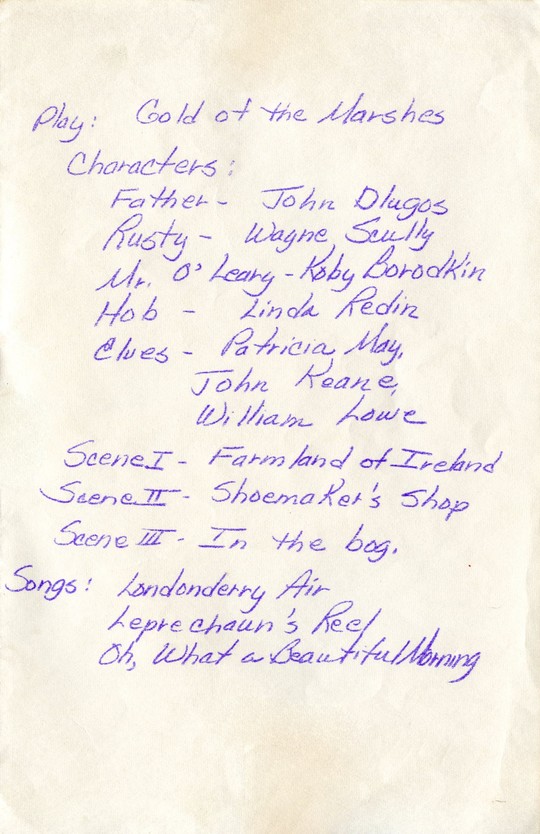 Play: Gold of the Marshes
Characters:
Father - John Dlugos
Rusty - Wayne Scully
Mr. O'Leary - Koby Borodkin
Hob - Linda Redin
Elves - Patricia May,
John Keane,
William Lowe
Scene I - Farmland of Ireland
Scene II - Shoemaker's Shop
Scene III - In the bog.
Songs: Londonderry Air
Leprechaun's Reel
Oh, What a Beautiful Morning